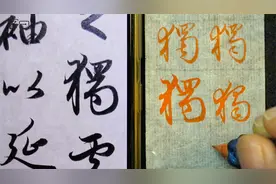 之獨雲
袖以延
獨獨
獨獨